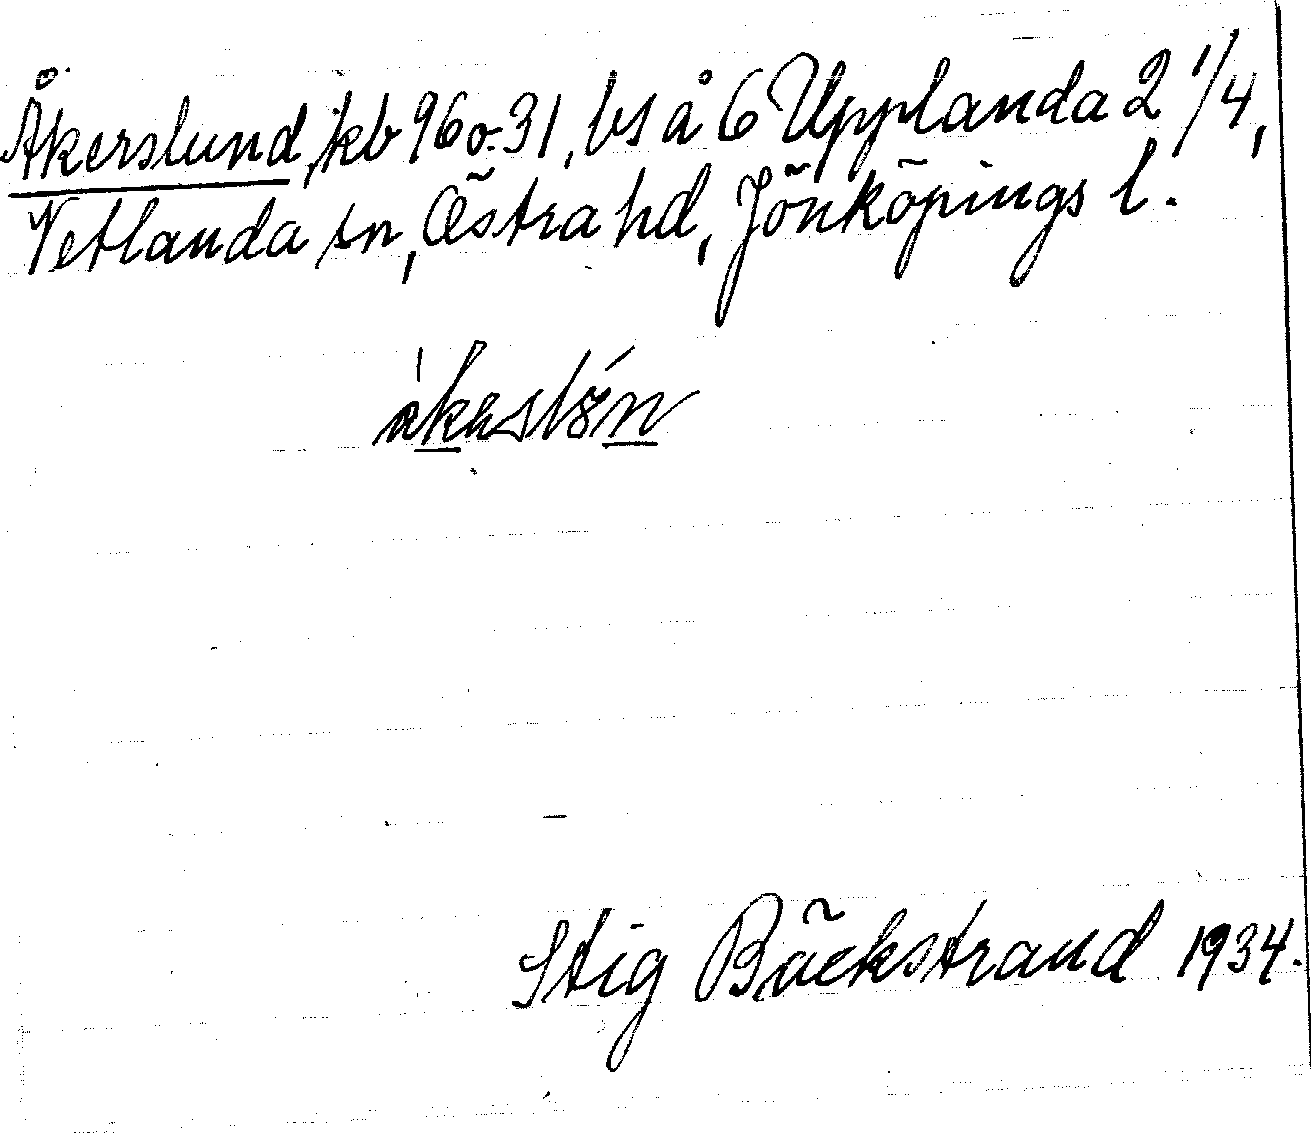 Åkerslund, kb 96 o. 31, bs å 6 Upplanda 2 1/4,
Vetlanda sn, Östra hd, Jönköpings l.
Stig Bäckstrand 1934.